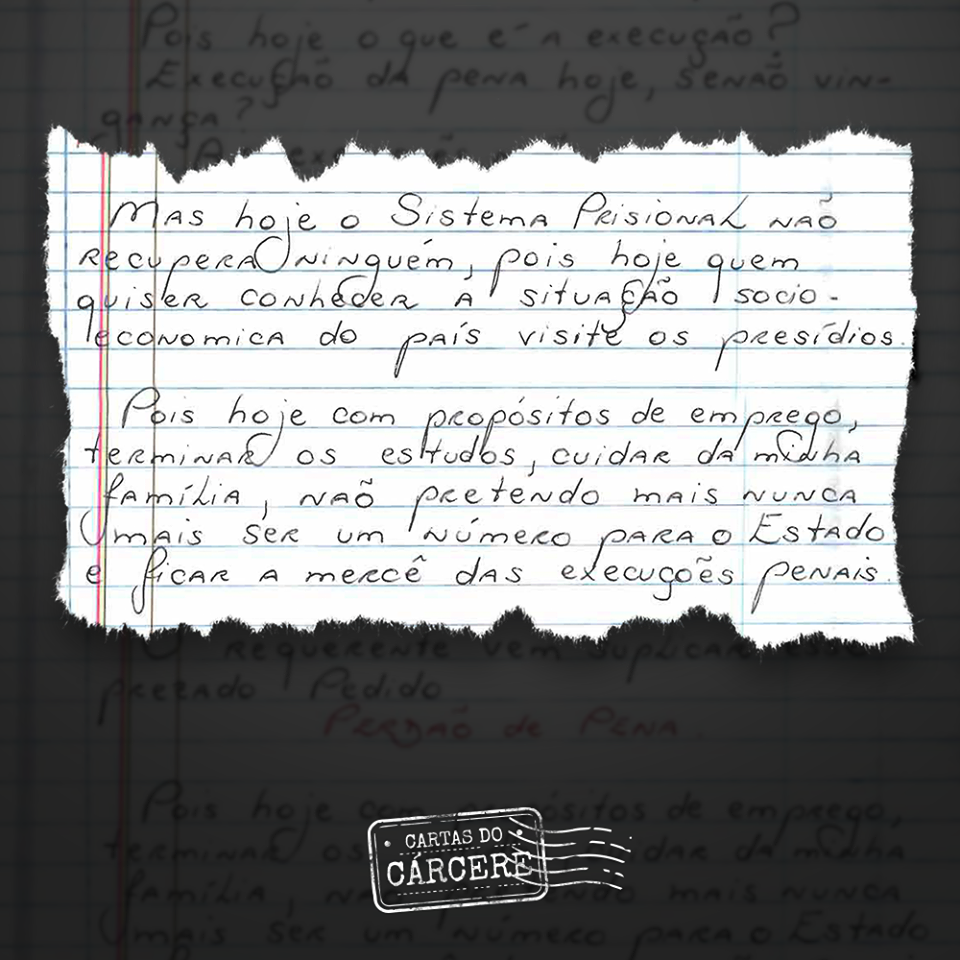 Pois hoje o que é a execução?
Execução da pena hoje, senão vin-
gança?
Mas hoje o Sistema Prisional não
recupera ninguém, pois hoje quem
quiser conheder á situação socio-
economica do país visite os presídios.
Pois hoje com propósitos de emprego,
terminar os estudos, cuidar da minha
família, não pretendo mais nunca
mais ser um número para o Estado
e ficar a mercê das execuções penais.
O requerente vem suplicar esse
prezado Pedido
Perdão de Pena
Pois hoje com propósitos de emprego,
terminar os cuidar da minha
família, não pretendo mais nunca
mais ser um número para o Estado
CARTAS DO
CÁRCERE